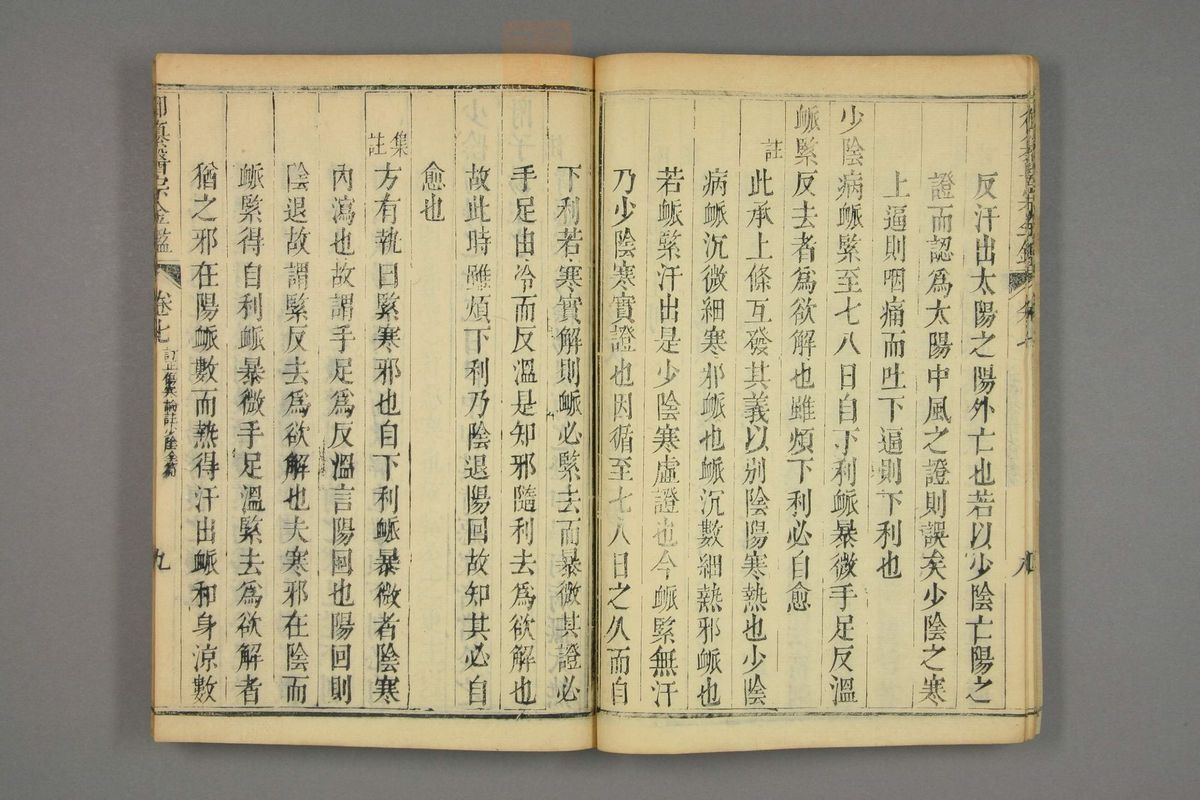 反汗出太陽之陽外亡也若以少陰亡陽之
證而認爲太陽中風之證則誤矣少陰之寒
上逼則咽痛而吐下逼則下利也
少陰病脈緊至七八日自下利脈暴微手足反溫
脈緊反去者爲欲解也雖煩下利必自愈
註
此承上條互發其義以別陰陽寒熱也少陰
病脈沉微細寒邪脈也脈沉數細熱邪脈也
若脈緊汗出是少陰寒虛證也今脈緊無汗
乃少陰寒實證也因循至七八日之久而自
下利若寒實解則脈必緊去而暴微其證必
手足由冷而反溫是知邪隨利去爲欲解也
故此時雖煩下利乃陰退陽回故知其必自
愈也
集註
方有執曰緊寒邪也自下利脈暴微者陰寒
內瀉也故謂手足爲反溫言陽回也陽回則
陰退故謂緊反去爲欲解也夫寒邪在陰而
脈緊得自利脈暴微手足溫緊去爲欲解者
猶之邪在陽脈數而熱得汗出脈和身涼數
卷七
九